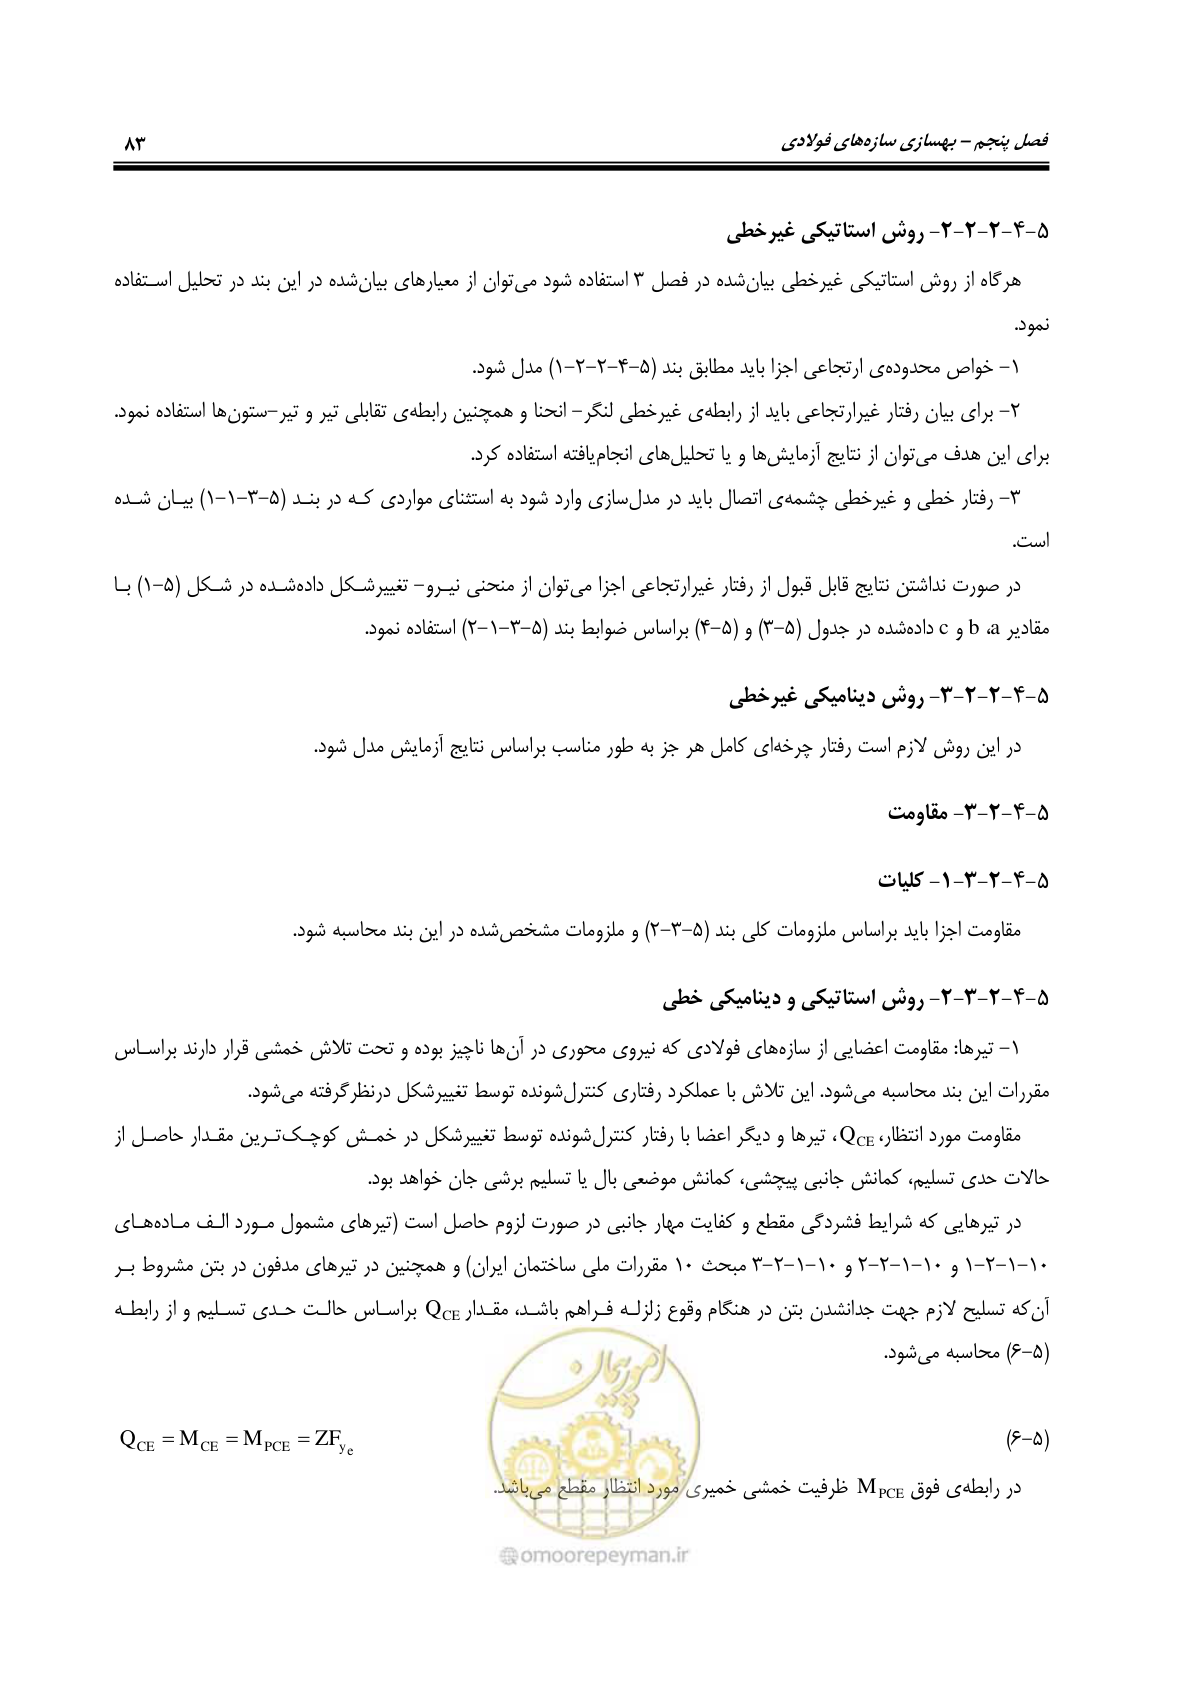 فصل پنجم – بهسازی سازه‌های فولادی ۸۳
۵-۴-۲-۲-۲- روش استاتیکی غیرخطی
هرگاه از روش استاتیکی غیرخطی بیان‌شده در فصل ۳ استفاده شود می‌توان از معیارهای بیان‌شده در این بند در تحلیل استفاده
نمود.
۱- خواص محدوده‌ی ارتجاعی اجزا باید مطابق بند (۵-۴-۲-۲-۱) مدل شود.
۲- برای بیان رفتار غیرارتجاعی باید از رابطه‌ی غیرخطی لنگر- انحنا و همچنین رابطه‌ی تقابلی تیر و تیر-ستون‌ها استفاده نمود.
برای این هدف می‌توان از نتایج آزمایش‌ها و یا تحلیل‌های انجام‌یافته استفاده کرد.
۳- رفتار خطی و غیرخطی چشمه‌ی اتصال باید در مدل‌سازی وارد شود به استثنای مواردی که در بند (۵-۳-۱-۱) بیان شده
است.
در صورت نداشتن نتایج قابل قبول از رفتار غیرارتجاعی اجزا می‌توان از منحنی نیرو- تغییرشکل داده‌شده در شکل (۵-۱) با
مقادیر a، b و c داده‌شده در جدول (۵-۳) و (۵-۴) براساس ضوابط بند (۵-۳-۱-۲) استفاده نمود.
۵-۴-۲-۲-۳- روش دینامیکی غیرخطی
در این روش لازم است رفتار چرخه‌ای کامل هر جز به طور مناسب براساس نتایج آزمایش مدل شود.
۵-۴-۲-۳- مقاومت
۵-۴-۲-۳-۱- کلیات
مقاومت اجزا باید براساس ملزومات کلی بند (۵-۳-۲) و ملزومات مشخص‌شده در این بند محاسبه شود.
۵-۴-۲-۳-۲- روش استاتیکی و دینامیکی خطی
۱- تیرها: مقاومت اعضایی از سازه‌های فولادی که نیروی محوری در آن‌ها ناچیز بوده و تحت تلاش خمشی قرار دارند براساس
مقررات این بند محاسبه می‌شود. این تلاش با عملکرد رفتاری کنترل‌شونده توسط تغییرشکل درنظرگرفته می‌شود.
مقاومت مورد انتظار، QCE، تیرها و دیگر اعضا با رفتار کنترل‌شونده توسط تغییرشکل در خمش کوچک‌ترین مقدار حاصل از
حالات حدی تسلیم، کمانش جانبی پیچشی، کمانش موضعی بال یا تسلیم برشی جان خواهد بود.
در تیرهایی که شرایط فشردگی مقطع و کفایت مهار جانبی در صورت لزوم حاصل است (تیرهای مشمول مورد الف ماده‌های
۱۰-۱-۲-۱ و ۱۰-۱-۲-۲ و ۱۰-۱-۲-۳ مبحث ۱۰ مقررات ملی ساختمان ایران) و همچنین در تیرهای مدفون در بتن مشروط بر
آن‌که تسلیح لازم جهت جدانشدن بتن در هنگام وقوع زلزله فراهم باشد، مقدار QCE براساس حالت حدی تسلیم و از رابطه
(۵-۶) محاسبه می‌شود.
(۵-۶) QCE = MCE = MPCE = ZFye
در رابطه‌ی فوق MPCE ظرفیت خمشی خمیری مورد انتظار مقطع می‌باشد.
امورپیمان
@omoorepeyman.ir